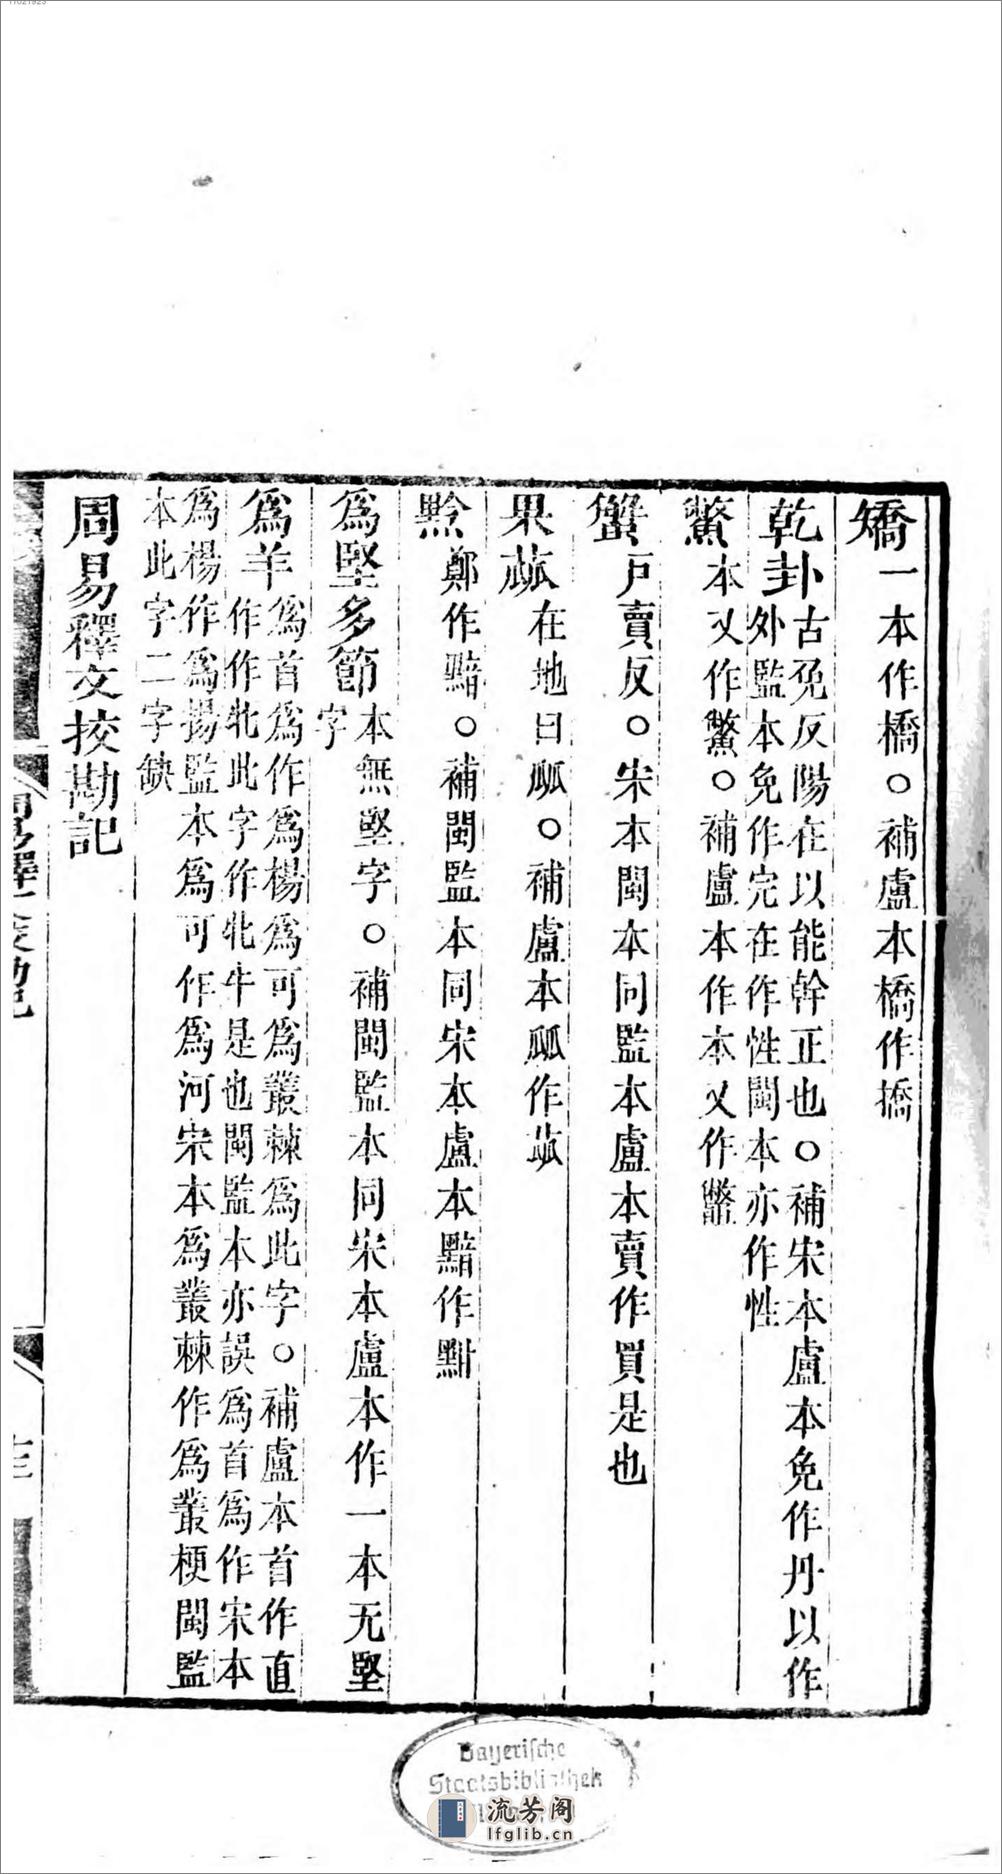 矯一本作橋○補盧本橋作撟
乾卦古免反陽在以能幹正也○補宋本盧本免作丹以作
外監本免作完在作性閩本亦作性
鱉本又作鱉○補盧本作本又作鼈
蟹戶賣反○宋本閩本同監本盧本賣作買是也
果蓏在地曰𤬏○補盧本𤬏作蓏
黔鄭作黯○補閩監本同宋本盧本黯作黚
爲堅多節本無堅字○補閩監本同宋本盧本作一本无堅
字
爲羊爲首爲作爲楊爲可爲叢棘爲此字○補盧本首作直
作作牝此字作牝牛是也閩監本亦誤爲首爲作宋本
爲楊作爲揚監本爲可作爲河宋本爲叢棘作爲叢梗閩監
本此字二字缺
周易釋文挍勘記
周易釋文挍勘記
十三
Bayerische
Staatsbibliothek
流芳閣
lfglib.cn
11021923